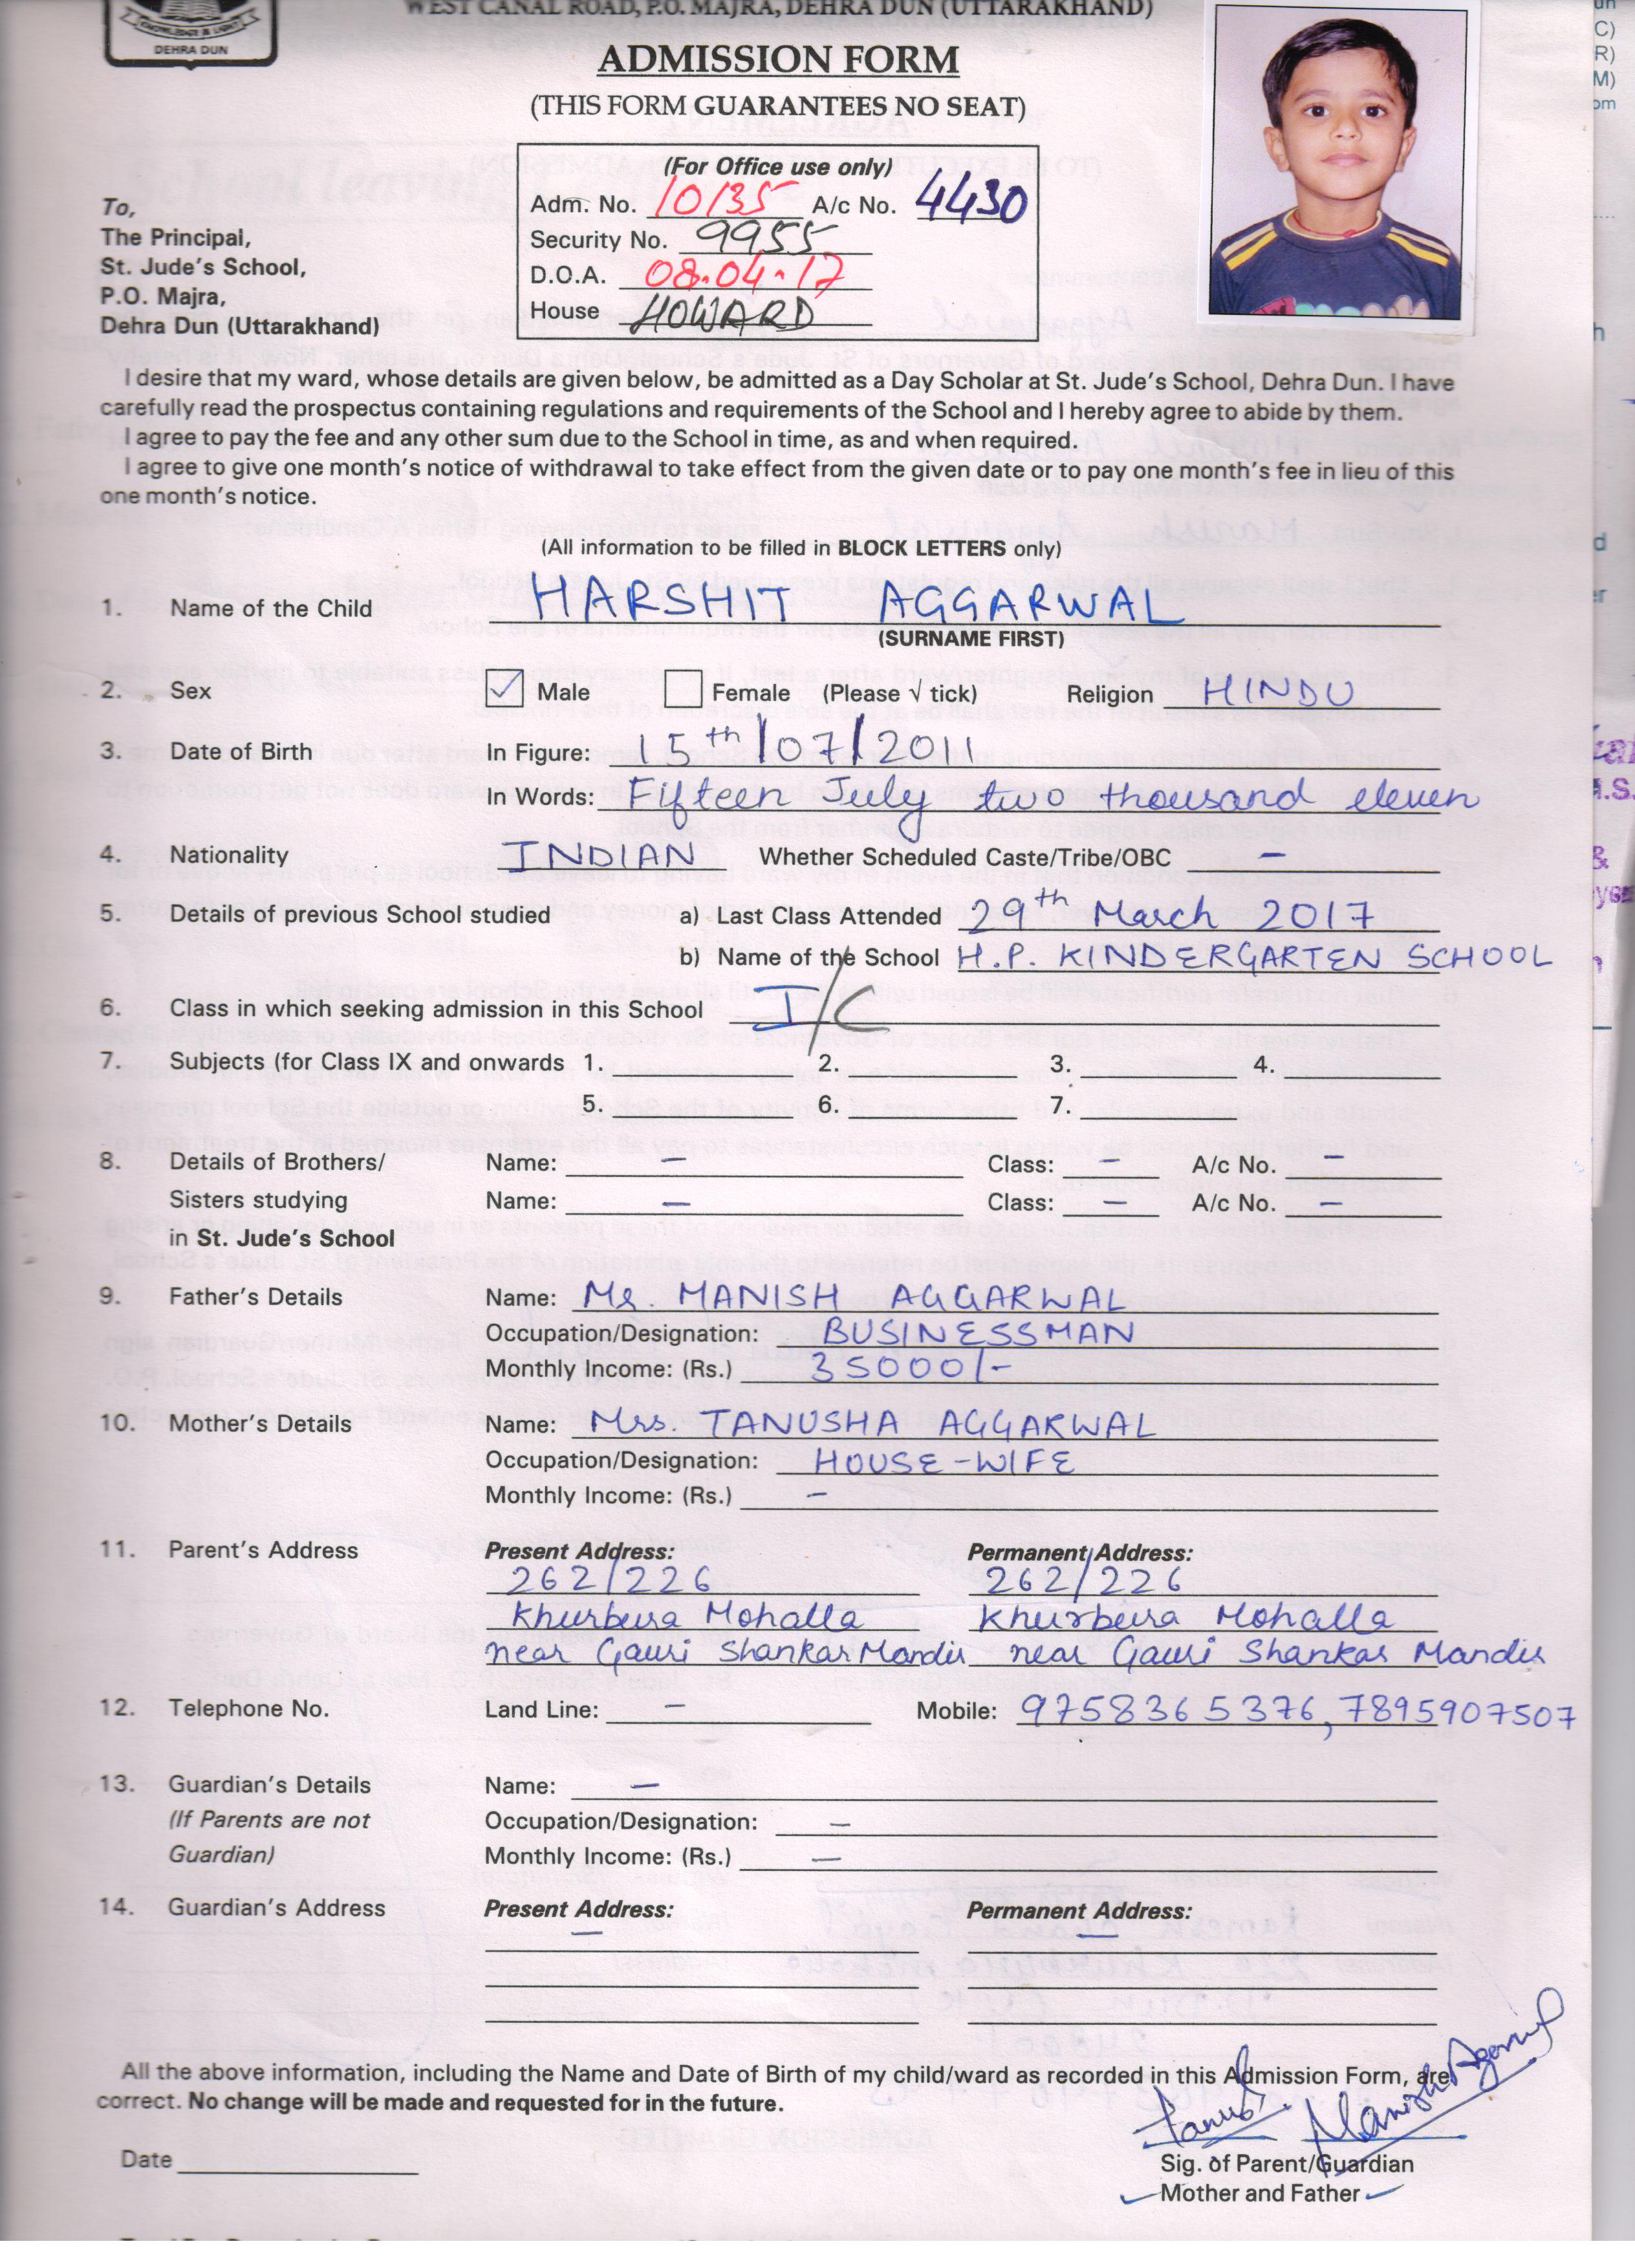 WEST CANAL ROAD, P.O. MAJRA, DEHRA DUN (UTTARAKHAND)
DEHRA DUN
ADMISSION FORM
(THIS FORM GUARANTEES NO SEAT)
(For Office use only)
Adm. No. 10135 A/c No. 4430
Security No. 9955
D.O.A. 08.04.17
House HOWARD
To,
The Principal,
St. Jude's School,
P.O. Majra,
Dehra Dun (Uttarakhand)
I desire that my ward, whose details are given below, be admitted as a Day Scholar at St. Jude's School, Dehra Dun. I have
carefully read the prospectus containing regulations and requirements of the School and I hereby agree to abide by them.
I agree to pay the fee and any other sum due to the School in time, as and when required.
I agree to give one month's notice of withdrawal to take effect from the given date or to pay one month's fee in lieu of this
one month's notice.
(All information to be filled in BLOCK LETTERS only)
1. Name of the Child HARSHIT AGGARWAL
(SURNAME FIRST)
2. Sex ✓ Male Female (Please √ tick) Religion HINDU
3. Date of Birth In Figure: 15th/07/2011
In Words: Fifteen July two thousand eleven
4. Nationality INDIAN Whether Scheduled Caste/Tribe/OBC –
5. Details of previous School studied a) Last Class Attended 29th March 2017
b) Name of the School H.P. KINDERGARTEN SCHOOL
6. Class in which seeking admission in this School I/C
7. Subjects (for Class IX and onwards 1. 2. 3. 4.
5. 6. 7.
8. Details of Brothers/ Name: – Class: – A/c No. –
Sisters studying Name: – Class: – A/c No. –
in St. Jude's School
9. Father's Details Name: Mr. MANISH AGGARWAL
Occupation/Designation: BUSINESSMAN
Monthly Income: (Rs.) 35000/-
10. Mother's Details Name: Mrs. TANUSHA AGGARWAL
Occupation/Designation: HOUSE-WIFE
Monthly Income: (Rs.) –
11. Parent's Address Present Address: Permanent Address:
262/226 262/226
Khurbura Mohalla Khurbura Mohalla
near Gauri Shankar Mandir near Gauri Shankar Mandir
12. Telephone No. Land Line: – Mobile: 9758365376, 7895907507
13. Guardian's Details Name: –
(If Parents are not Occupation/Designation: –
Guardian) Monthly Income: (Rs.) –
14. Guardian's Address Present Address: Permanent Address:
– –
All the above information, including the Name and Date of Birth of my child/ward as recorded in this Admission Form, are
correct. No change will be made and requested for in the future.
Manish Agarwal
Date
Sig. of Parent/Guardian
Mother and Father